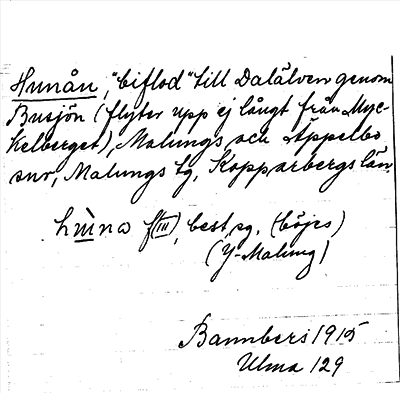 Hunån, "biflod" till Dalälven genom
Busjön (flyter upp ej långt från Myc-
kelberget), Malungs och Äppelbo
snr, Malungs tg, Kopparbergs län.
hùna f(III), best. sg. (böjes)
(Y-Malung)
Bannbers 1915
Ulma 129